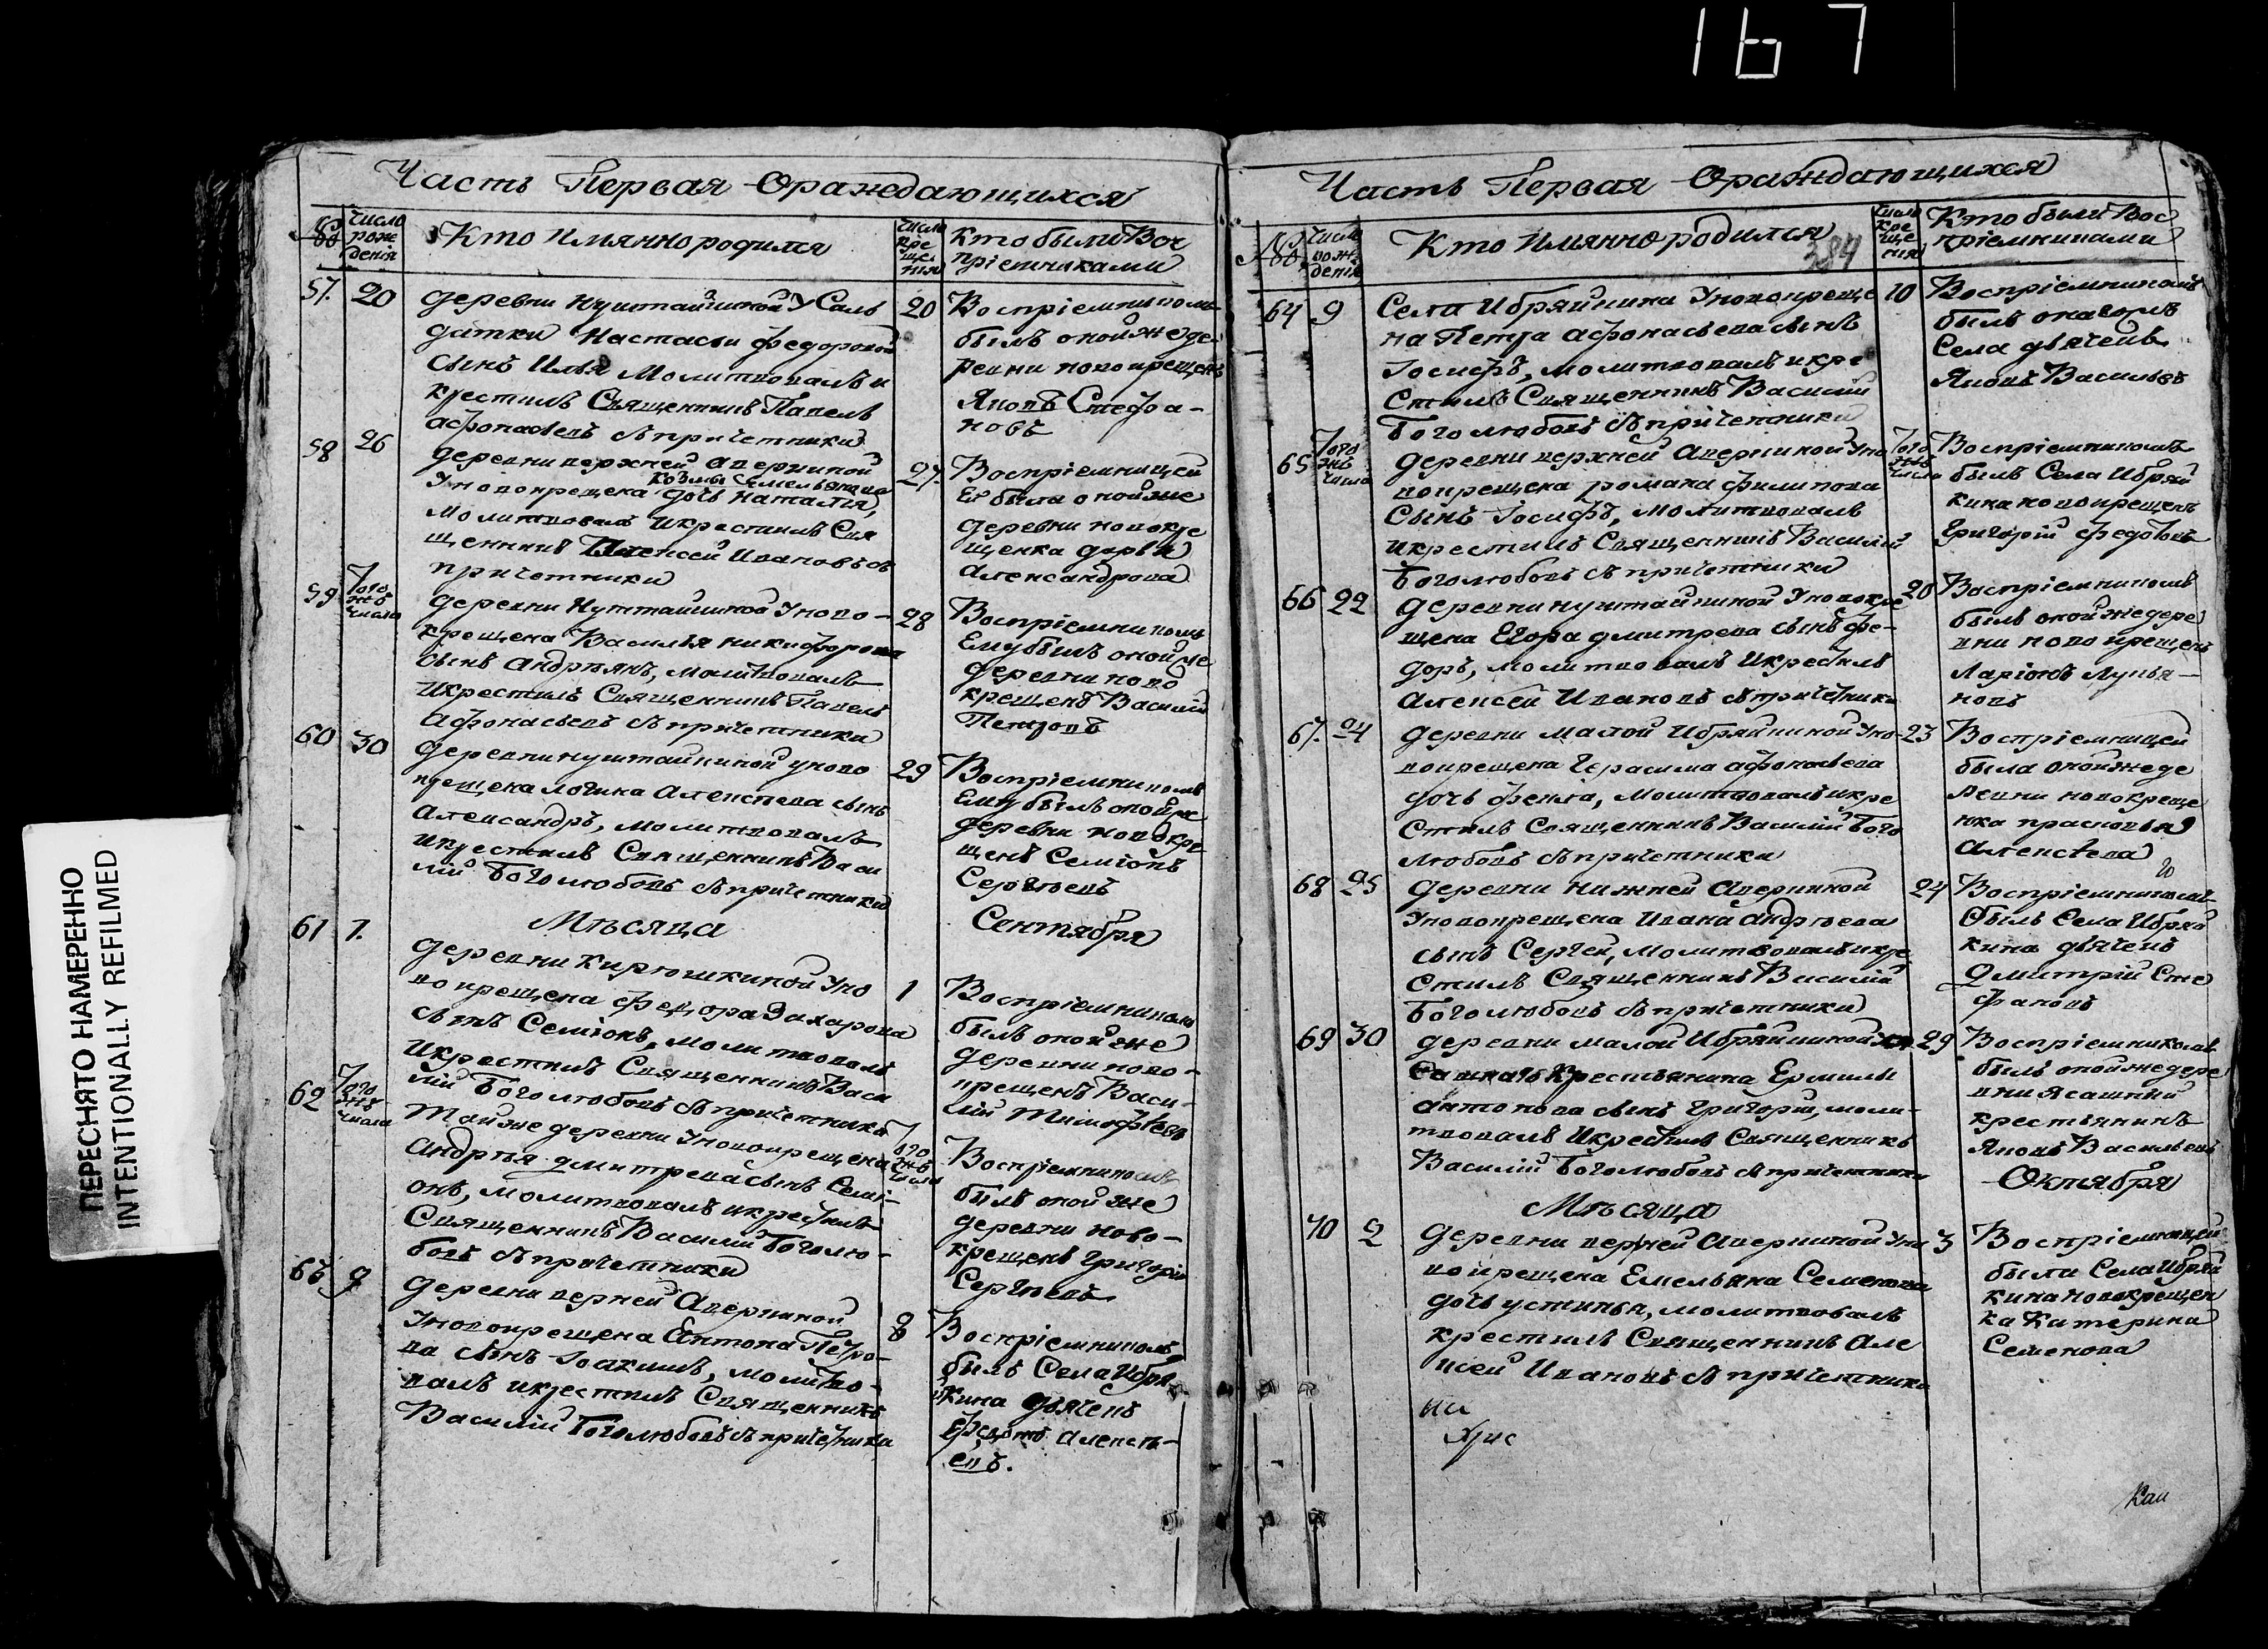 167
ПЕРЕСНЯТО НАМЕРЕННО
INTENTIONALLY REFILMED
Часть Первая Ораждающихся
Число рож дения
Кто Имянно родился
Число кре ще ния
Кто были Вос
пріемниками
57. 20
деревни Нуштайкиной У Сал
датки Настасьи федоровой
сынъ Илья Молитвовалъ и
крестилъ Священникъ Павелъ
афонасьевъ съ причетники
20
Воспріемникомъ
былъ оной же де
ревни новокрещенъ
Яковъ Стефа-
новъ
58 26
деревни верхней аверкиной
Козмы Емельянова
Уновокрещена дочь наталья,
Молитвовалъ Икрестилъ Свя
щенникъ Алексей Ивановъ съ
причетники
27.
Воспріемницей
Ей была оной же
деревни новокре
щенка дарья
Александрова
59 Того жъ числа
деревни Нуштайкиной Уново-
крещена Василья никифорова
сынъ андреянъ, молитвовалъ
Икрестилъ Священникъ Павелъ
афонасьевъ съ причетники
28
Воспріемникомъ
Ему былъ оной же
деревни ново
крещенъ Василій
Петровъ
60 30
деревни нуштайкиной уново
крещена логина Алексеева сынъ
Александръ, молитвовалъ
Икрестилъ Священникъ Васи
лій Боголюбовъ съ причетники
29
Воспріемникомъ
Ему былъ оной же
деревни новокре
щенъ Семіонъ
Сергѣевъ
Мѣсяца
Сентября
61 1.
деревни Кирюшкиной Уно
вокрещена федора Захарова
сынъ Семіонъ, молитвовалъ
Икрестилъ Священникъ Васи
лій Боголюбовъ съ причетники
1
Воспріемникомъ
былъ оной же
деревни ново-
крещенъ Васи-
лій Тимофѣевъ
62 Того жъ числа
Той же деревни Уновокрещена
Андрѣя дмитрева сынъ Семі-
онъ, молитвовалъ икрестилъ
Священникъ Василій Боголю-
бовъ съ причетники
Того жъ числа
Воспріемникомъ
былъ оной же
деревни ново-
крещенъ григорій
Сергѣевъ
63 9
деревни верней Аверкиной
Уновокрещена Антона Петро-
ва сынъ Іоакимъ, молитво-
валъ икрестилъ Священникъ
Василій Боголюбовъ съ причетники
8
Воспріемникомъ
былъ Села Ибряй
кина дьячекъ
Алексѣ-
евъ.
Часть Первая Ораждающихся
Число рож денія
Кто Имянно родился
384
Число кре ще нія
Кто были Вос
пріемниками
64 9
Села Ибряйкина Уновокреще
на Петра афонасьева сынъ
Іосифъ, молитвовалъ икре
стилъ Священникъ Василій
Боголюбовъ съ причетники
10
Воспріемникомъ
былъ онагожъ
Села дьячекъ
Яковъ Васильевъ
65 Того жъ числа
деревни верхней Аверкиной Уно
вокрещена романа филипова
Сынъ Іосифъ, Молитвовалъ
икрестилъ Священникъ Василій
Боголюбовъ съ причетники
Того жъ числа
Воспріемникомъ
былъ Села Ибряй
кина новокрещенъ
Григорій федотовъ
66 22
деревни нуштайкиной Уновокре
щена Егора дмитрева сынъ фе-
доръ, молитвовалъ Икрестилъ
Алексей Ивановъ съ причетники
20
Воспріемникомъ
былъ оной же дере
вни новокрещенъ
Ларіонъ Лукья-
новъ
67. 24
деревни малой Ибряйкиной Уно-
вокрещена Герасима афонасьева
дочь фекла, молитвовалъ икре
стилъ Священникъ Василій Бого
любовъ съ причетники
23
Воспріемницей
была оной же де
ревни новокреще
нка прасковья
Алексеева
20
68 25
деревни нижней Аверкиной
Уновокрещена Ивана андрѣева
сынъ Сергей, молитвовалъ икре
стилъ Священникъ Василій
Боголюбовъ съ причетники
24
Воспріемникомъ
былъ Села Ибряй
кина дьячекъ
Дмитрій Сте
фановъ
69 30
деревни малой Ибряйкиной
Ясашнаго Крестьянина Ермилы
антонова сынъ григорій, моли-
твовалъ Икрестилъ Священникъ
Василій Боголюбовъ съ причетники
29
Воспріемникомъ
былъ оной же дере
вни Ясашный
крестьянинъ
Яковъ Васильевъ
Мѣсяца
Октября
70 2
деревни верхней Аверкиной Уно
вокрещена Емельяна Семенова
дочь устинья, молитвовалъ
крестилъ Священникъ Але
ксей Ивановъ съ причетники
3
Воспріемницей
была Села Ибряй
кина новокрещен
ка Катерина
Семенова